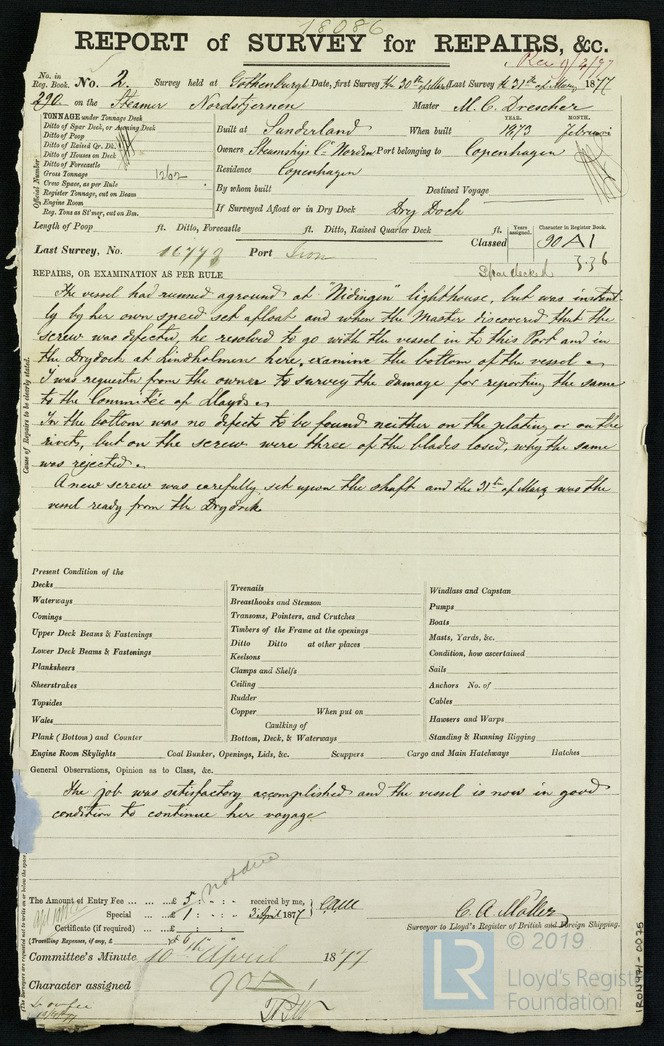 18086
REPORT of SURVEY for REPAIRS, &c.
No. in Reg. Book. No. 2. Survey held at Gothenburgh Date, first Survey the 30th of Mars Last Survey the 31th of Mars, 1877
290. on the Steamer Nordstjernen Master M. C. Drescher
TONNAGE under Tonnage Deck
Ditto of Spar Deck, or Awning Deck
Ditto of Poop
Ditto of Raised Qr. Dk.
Ditto of Houses on Deck
Ditto of Forecastle
Gross Tonnage 1262
Crew Space, as per Rule
Register Tonnage, cut on Beam
Engine Room
Reg. Tons as St'mer, cut on Bm.
Official Number
YEAR. MONTH.
Built at Sunderland When built 1873 februari
Owners Steamship Co Norden Port belonging to Copenhagen
Residence Copenhagen
By whom built Destined Voyage
If Surveyed Afloat or in Dry Dock Dry Dock
Length of Poop ft. Ditto, Forecastle ft. Ditto, Raised Quarter Deck ft.
Years assigned. Character in Register Book.
Classed 90 A1
Last Survey, No. 16773 Port Iron
Spar decked 336
REPAIRS, OR EXAMINATION AS PER RULE
Cause of Repairs to be clearly stated.
The vessel had runned aground at "Nidingen" lighthouse, but was instant-
ly by her own speed set afloat and when the Master discovered that the
screw was defected, he resolved to go with the vessel in to this Port and in
the Drydock at Lindholmen here, examine the bottom of the vessel
I was requester from the owner to survey the damage for reporting the same
to the Committée of Lloyds
In the bottom was no defects to be found neither on the plating or on the
rivets, but on the screw were three of the blades losed, why the same
was rejected
A new screw was carefully set upon the shaft and the 31th of Mars was the
vessel ready from the Drydock
Present Condition of the
Decks
Waterways
Comings
Upper Deck Beams & Fastenings
Lower Deck Beams & Fastenings
Planksheers
Sheerstrakes
Topsides
Wales
Plank (Bottom) and Counter
Treenails
Breasthooks and Stemson
Transoms, Pointers, and Crutches
Timbers of the Frame at the openings
Ditto Ditto at other places
Keelsons
Clamps and Shelfs
Ceiling
Rudder
Copper When put on
Caulking of
Bottom, Deck, & Waterways
Windlass and Capstan
Pumps
Boats
Masts, Yards, &c.
Condition, how ascertained
Sails
Anchors No. of
Cables
Hawsers and Warps
Standing & Running Rigging
Engine Room Skylights Coal Bunker, Openings, Lids, &c. Scuppers Cargo and Main Hatchways Hatches
General Observations, Opinion as to Class, &c.
The job was satisfactory accomplished and the vessel is now in good
condition to continue her voyage
not due
The Amount of Entry Fee £ 5 : - : - received by me,
Special £ 1 : - : - 3 April 1877
Certificate (if required) £
(Travelling Expenses, if any, £
C. A. Möller
Surveyor to Lloyd's Register of British and Foreign Shipping.
Committee's Minute 10th April 1877
Character assigned 90A1
© 2019
LR
Lloyd's Register
Foundation
IRON471-0075